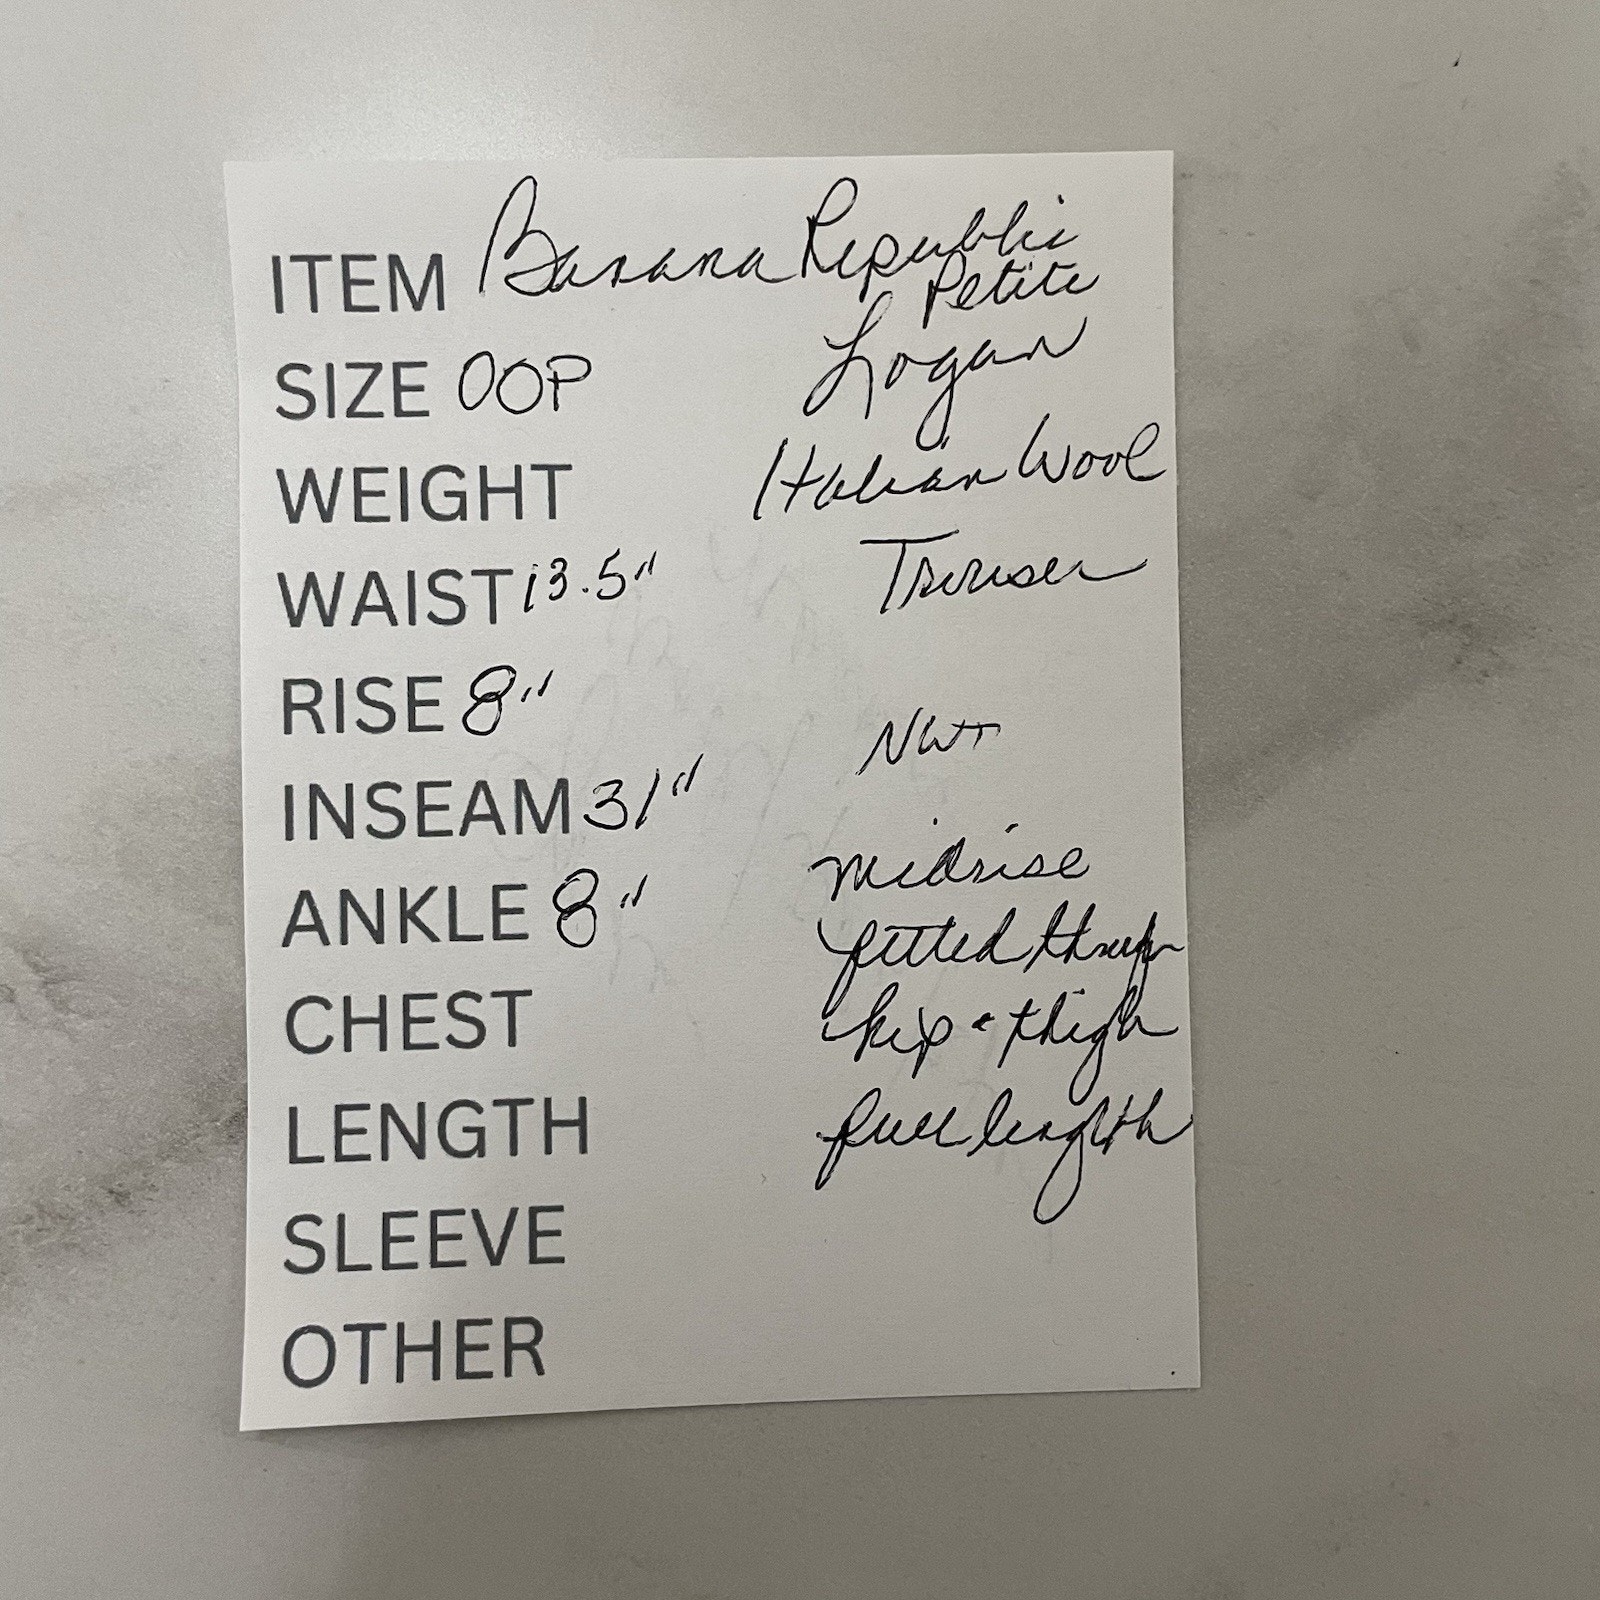 ITEM Banana Republic
Petite
SIZE 00P Logan
WEIGHT Italian Wool
WAIST 13.5" Trouser
RISE 8"
NWT
INSEAM 31"
midrise
ANKLE 8" fitted through
CHEST hip & thigh
LENGTH full length
SLEEVE
OTHER